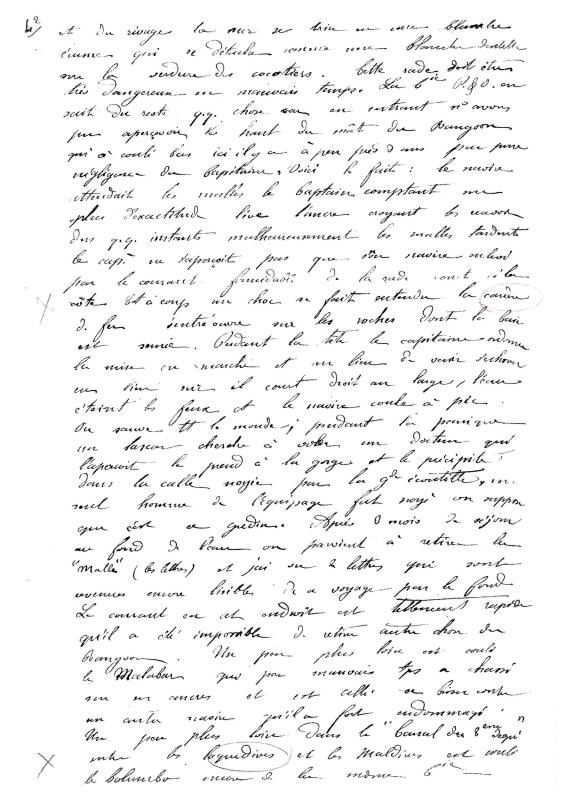 42)
et du rivage la mer se brise en une blanche
écume qui se détache comme une blanche dentelle
sur la verdure des cocotiers. Cette rade doit être
très dangereuse en mauvais temps. La Cie P&O. en
sait du reste q.q. chose car en entrant n/ avons
pu apercevoir le haut du mât du Rangoon
qui a coulé bas ici il y a à peu près 3 ans par pure
négligence du Capitaine, Voici le fait : le navire
attendait les malles le Captaine comptant sur
plus d'exactitude lève l'ancre croyant les recevoir
dans q.q. instants malheureusement les malles tardent
le capne ne s'aperçoit pas que son navire
par le courant formidable de la rade court à la
côte tt à coup un choc se fait entendre la carène
de fer s'entr'ouvre sur les roches dont la baie
est semée. Perdant la tête le capitaine ordonne
la mise en marche et au lieu de venir s'échouer
en lieu sûr il court droit au large, l'eau
éteint les feux et le navire coule à pic.
On sauve tt le monde ; pendant la panique
un lascar cherche à voler un docteur qui
l'aperçoit le prend à la gorge et le précipite
dans la calle noyée par la gde écoutille, un
seul homme de l'équipage fut noyé on suppose
que c'est ce gredin. Après 3 mois de séjour
au fond de l'eau on parvient à retirer la
"Malle" (les lettres) et j'ai vu 2 lettres qui sont
revenues encore lisibles de ce voyage par le fond
Le courant en cet endroit est tellement rapide
qu'il a été impossible de retirer autre chose du
Rangoon. Un peu plus loin est coulé
le Malabar que par mauvais tps a chassé
sur ses ancres et est allé se briser contre
un autre navire qu'il a fort endommagé.
Un peu plus loin dans le "Canal du 8eme degré"
entre les laquedives et les Maldives est coulé
le Columbo encore de la même Cie